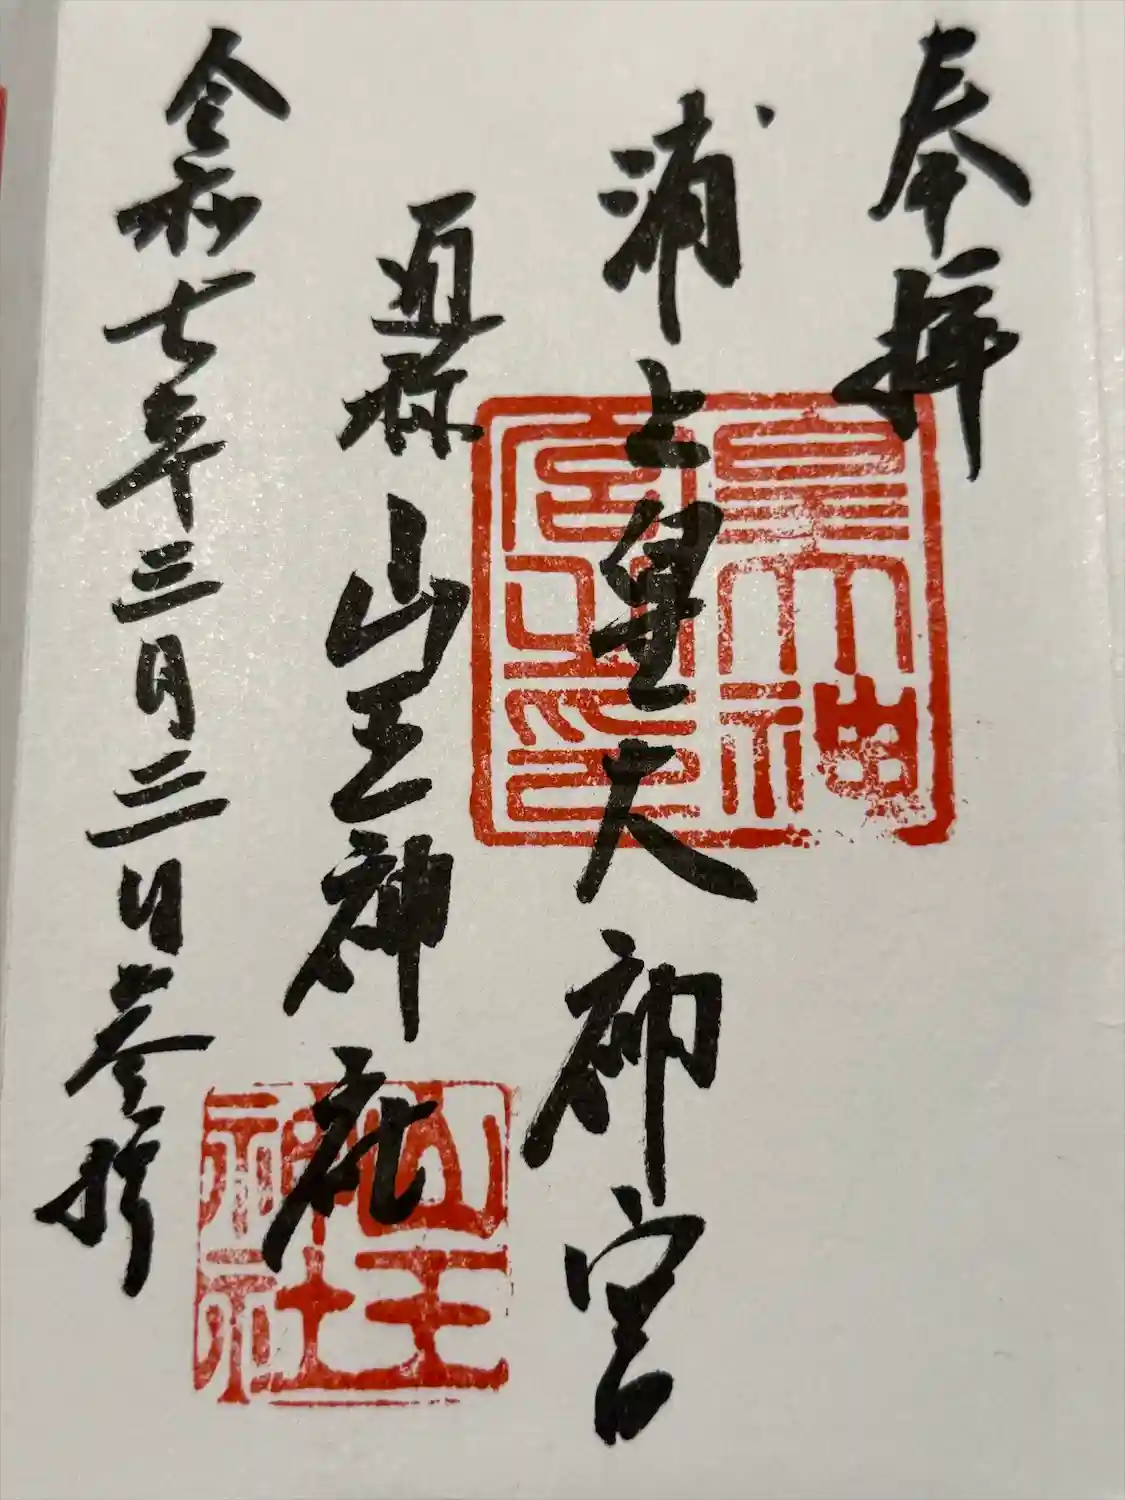 奉拝
浦上皇大神宮
通称 山王神社
令和七年三月三日参拝
皇大神
宮之印
山王
神社